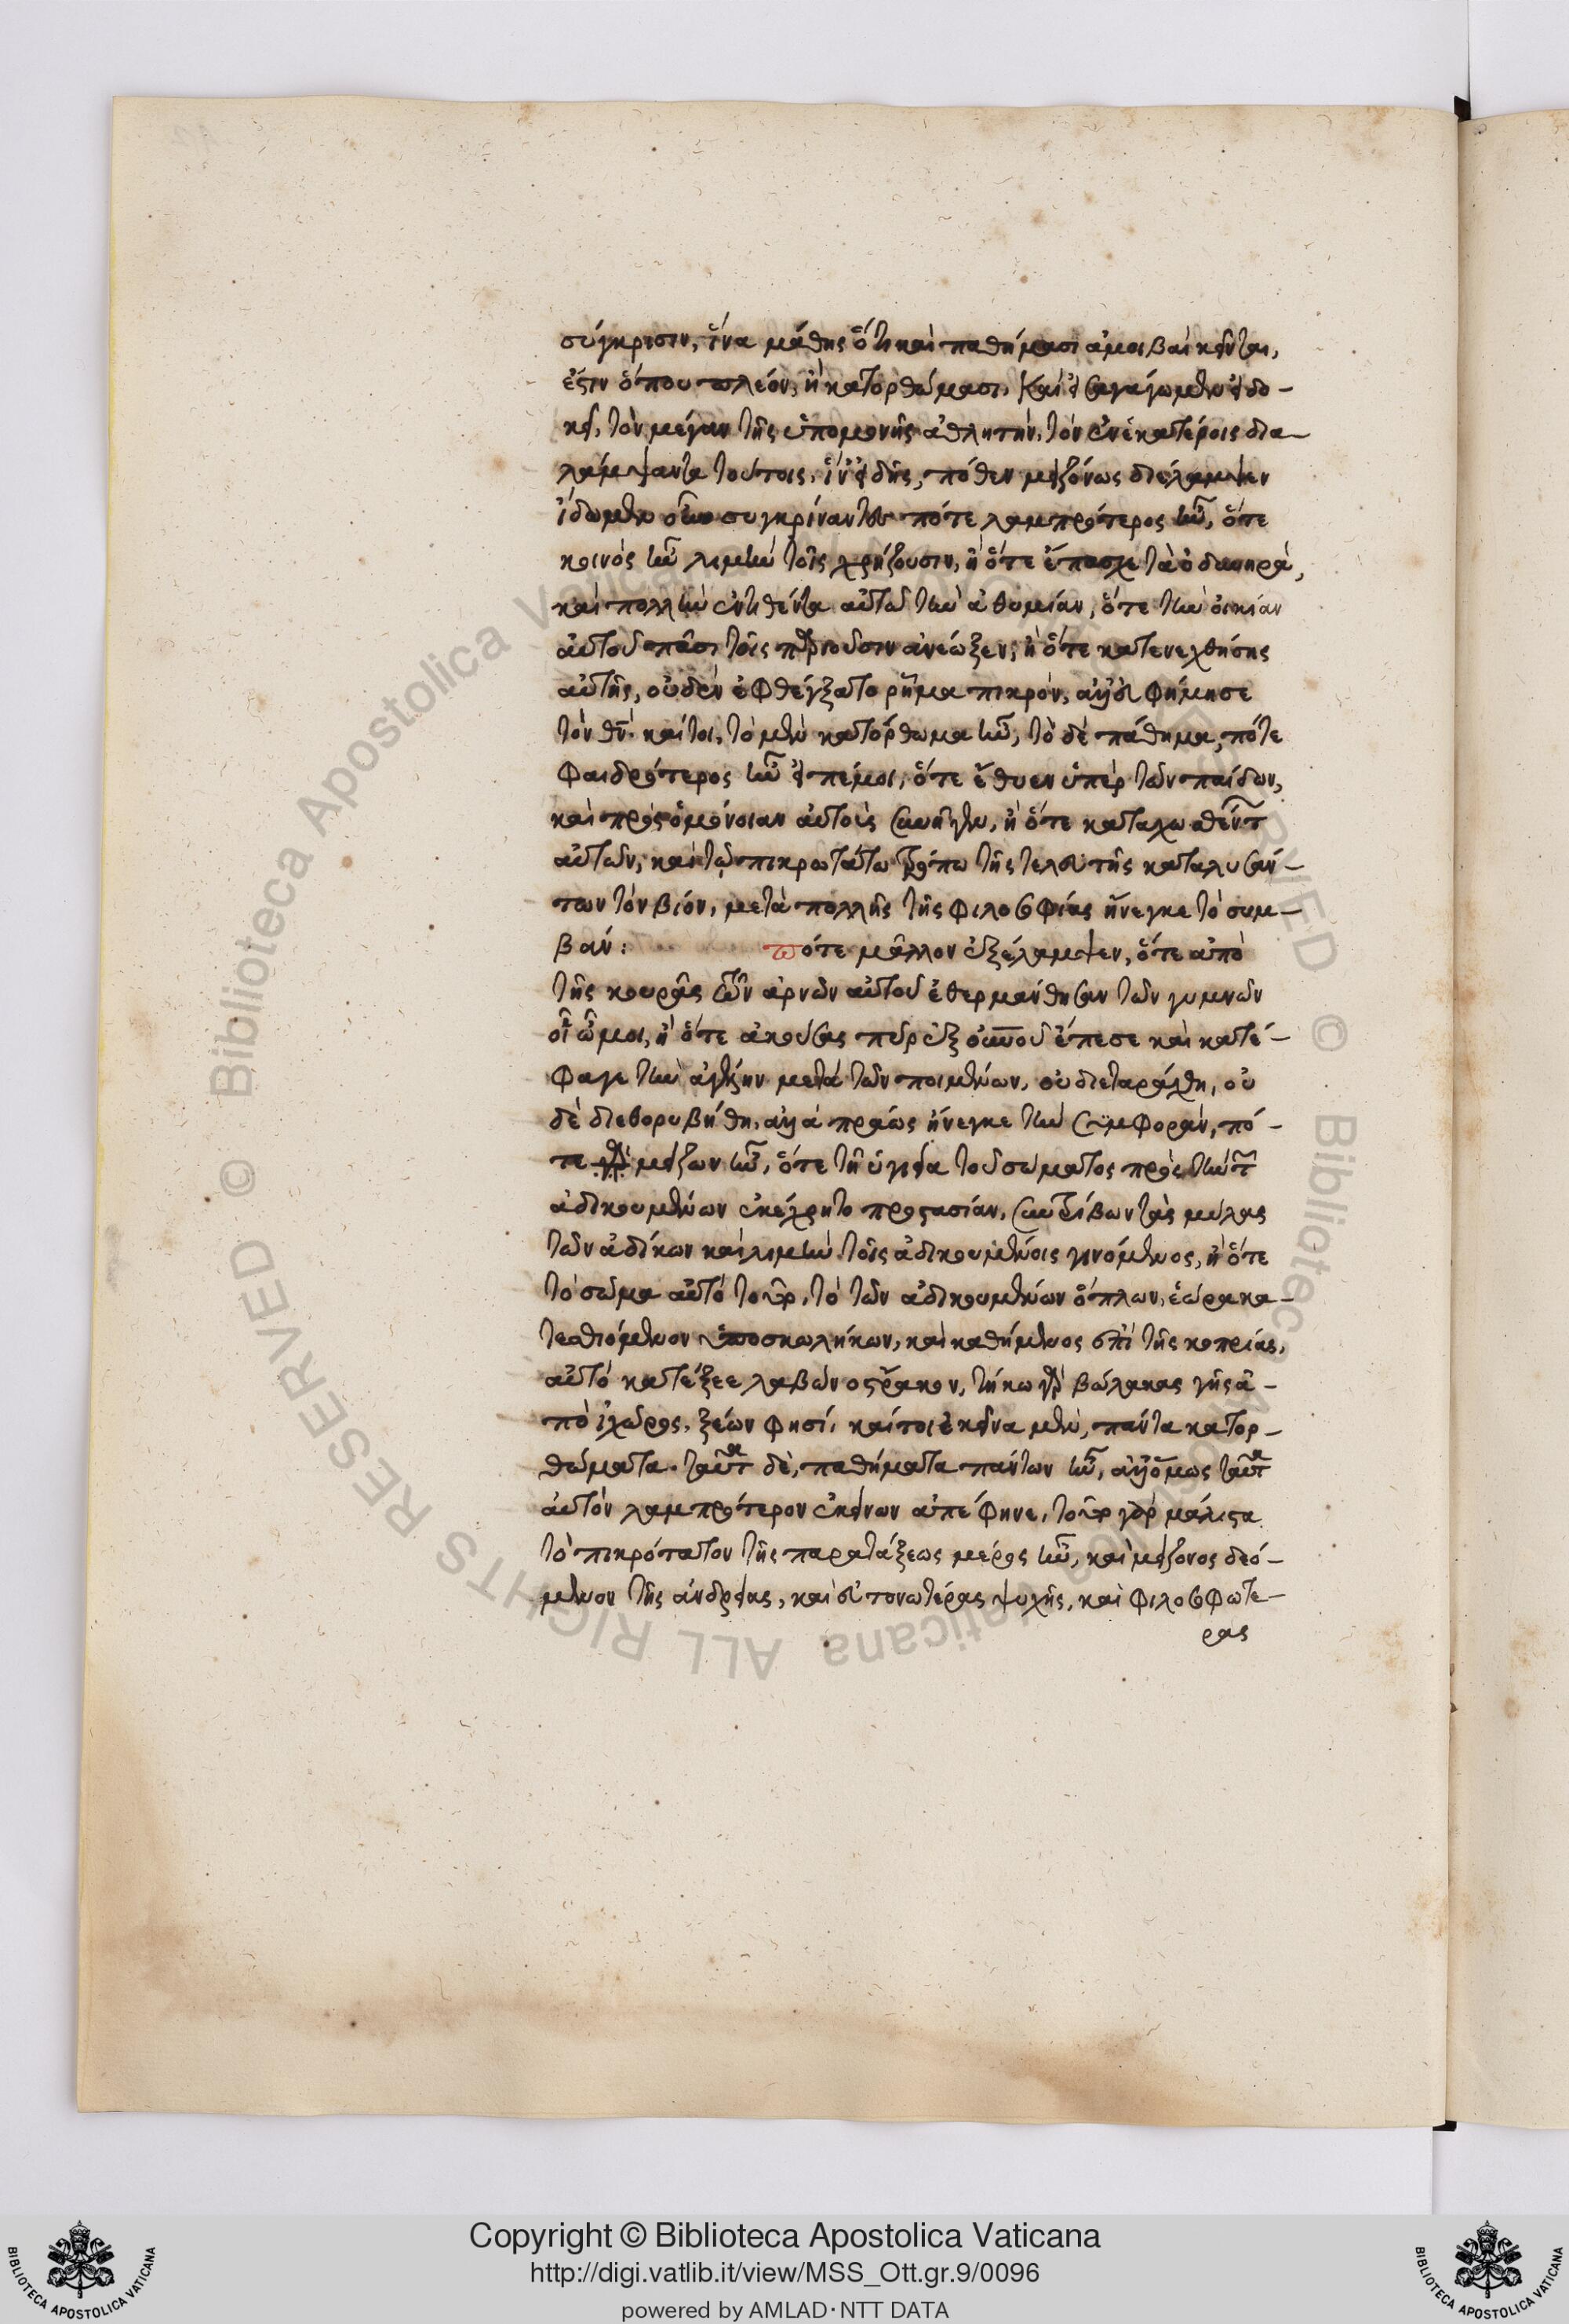 σύγκρισιν, ἵνα μάθης ὅτι καὶ παθήμασι ἀμοιβαὶ κεῖνται,
ἐστιν ὅπου πλέον, ἢ κατορθώμασι. καὶ εἰσαγάγωμεν εἰ δο-
κεῖ, τὸν μέγαν τῆς ὑπομονῆς ἀθλητὴν, τὸν ἐν ἑκατέροις δια-
λάμψαντα τούτοις, ἵν' εἰδῆς, πόθεν μειζόνως διέλαμψεν
ἴδωμεν οὖν συγκρίναντες πότε λαμπρότερος ἦν, ὅτε
κοινὸς ἦν λιμὴν τοῖς χρήζουσιν, ἢ ὅτε ἔπασχε τὰ ὀδυνηρὰ,
καὶ πολλὴν ἐντιθέντα αὐτῶ τὴν ἀθυμίαν, ὅτε τὴν οἰκίαν
αὐτοῦ πᾶσι τοῖς παριοῦσιν ἀνέωξεν, ἢ ὅτε κατενεχθείσης
αὐτῆς, οὐδὲν ἐφθέγξατο ρῆμα πικρόν, ἀλλ' εὐφήμησε
τὸν θν. καίτοι, τὸ μὲν κατόρθωμα ἦν, τὸ δὲ πάθημα, πότε
φαιδρότερος ἦν εἰπέ μοι, ὅτε ἔθυεν ὑπὲρ τῶν παίδων,
καὶ πρὸς ὁμόνοιαν αὐτοὺς συνῆγεν, ἢ ὅτε καταχωσθέντ
αὐτῶν, καὶ τῷ πικρωτάτω τρόπω τῆς τελευτῆς καταλυσάν-
των τὸν βίον, μετὰ πολλῆς τῆς φιλοσοφίας ἤνεγκε τὸ συμ-
βαν: πότε μᾶλλον ἐξέλαμψεν, ὅτε ἀπὸ
τῆς κουρᾶς τῶν ἀρνῶν αὐτοῦ ἐθερμάνθησαν τῶν γυμνῶν
οἱ ὦμοι, ἢ ὅτε ἀκούσας πῦρ ἐξ οὐνοῦ ἔπεσε καὶ κατέ-
φαγε τὴν ἀγέλην μετὰ τῶν ποιμένων, οὐ διεταράχθη, οὐ
δὲ διεθορυβήθη, ἀλλὰ πράως ἤνεγκε τὴν συμφορὰν, πό-
τε μείζων ἦν, ὅτε τῆ ὑγιεία τοῦ σώματος πρὸς τὴν τ
ἀδικουμένων ἐκέχρητο προστασίαν, συντρίβων τὰς μύλας
τῶν ἀδίκων καὶ λιμὴν τοῖς ἀδικουμένοις γινόμενος, ἢ ὅτε
τὸ σῶμα αὐτὸ τοῦτο, τὸ τῶν ἀδικουμένων ὅπλον, ἑώρα κα-
τεσθιόμενον ὑπὸ σκωλήκων, καὶ καθήμενος ἐπὶ τῆς κοπρίας,
αὐτὸ κατέξεε λαβὼν ὄστρακον, τήκω γὰρ βώλακας γῆς ἀ-
πὸ ἰχῶρος, ξέων φησί, καίτοι ἐκεῖνα μὲν, πάντα κατορ-
θώματα. ταῦτα δὲ, παθήματα πάντων ἦν, ἀλλ' ὅμως ταῦτα
αὐτὸν λαμπρότερον ἐκείνων ἀπέφηνε, τοῦτο γὰρ μάλιστα
τὸ πικρότατον τῆς παρατάξεως μέρος ἦν, καὶ μείζονος δεό-
μενον τῆς ἀνδρείας, καὶ εὐτονωτέρας ψυχῆς, καὶ φιλοσοφωτε-
ρας
Copyright © Biblioteca Apostolica Vaticana
http://digi.vatlib.it/view/MSS_Ott.gr.9/0096
powered by AMLAD·NTT DATA